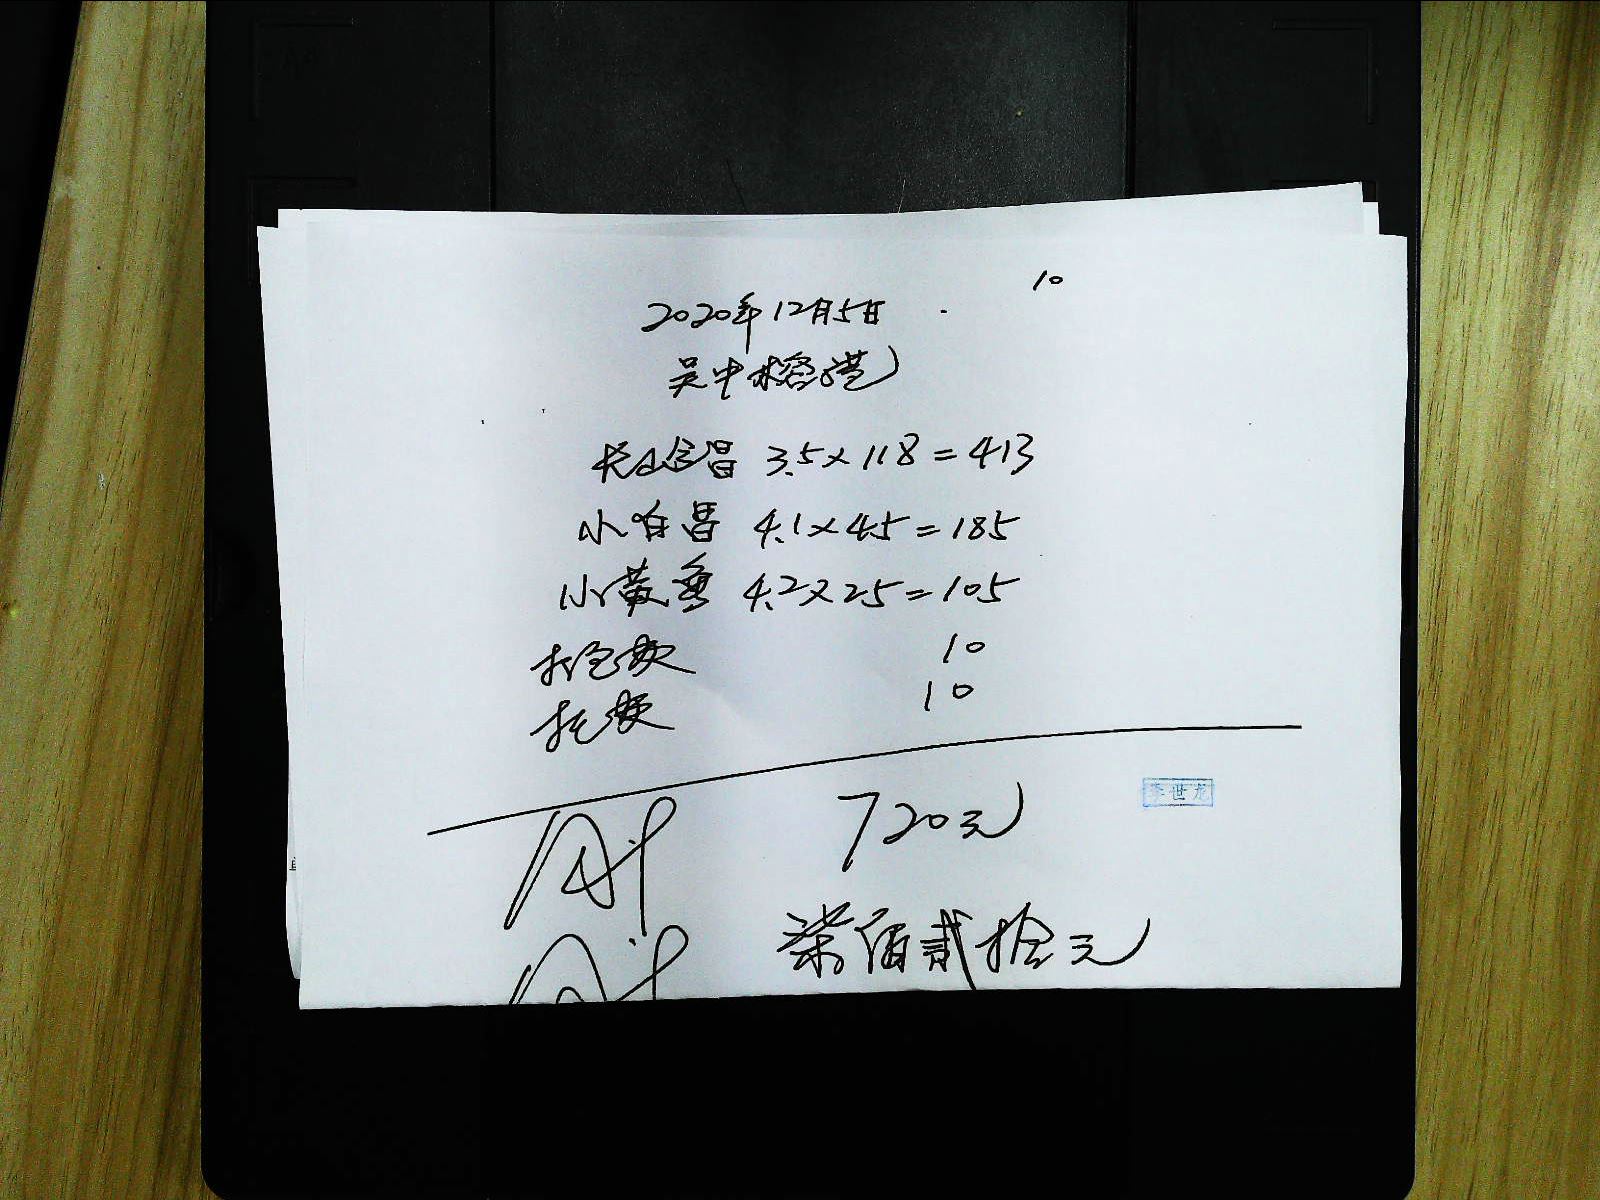 10
2020年12月5日
吴中榕港
3.5×118=413
小白昌 4.1×45=185
小黄鱼 4.2×25=105
打包费 10
打费 10
720元
李世龙
柒佰贰拾元